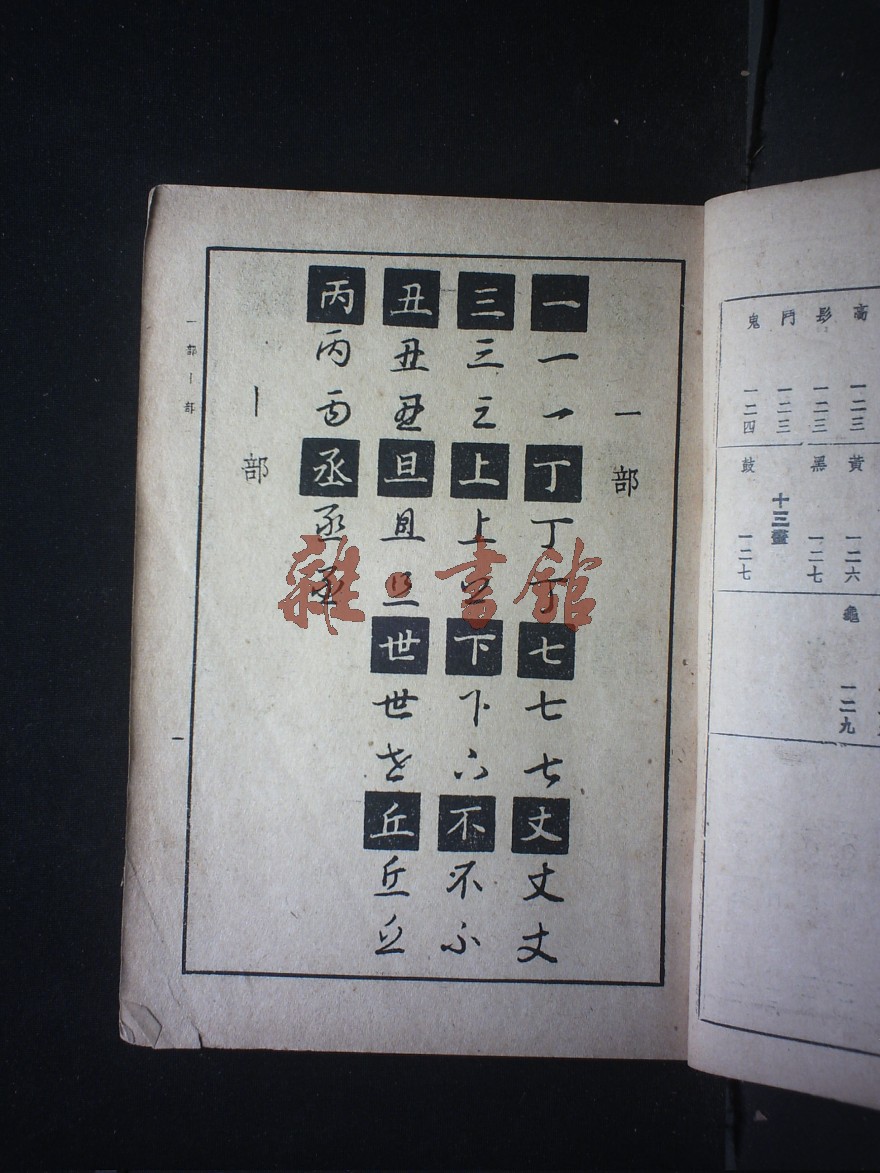 一部
一一一丁丁丁七七七丈丈丈
三三三上上上下下下不不不
丑丑丑且且且世世世丘丘丘
丙丙丙丞丞丞
丨部
一部丨部
一
高 髟 鬥 鬼
一二三 一二三 一二三 一二四
黃 黑 十三畫 鼓
一二六 一二七 一二七
龜
一二九
雜·書館